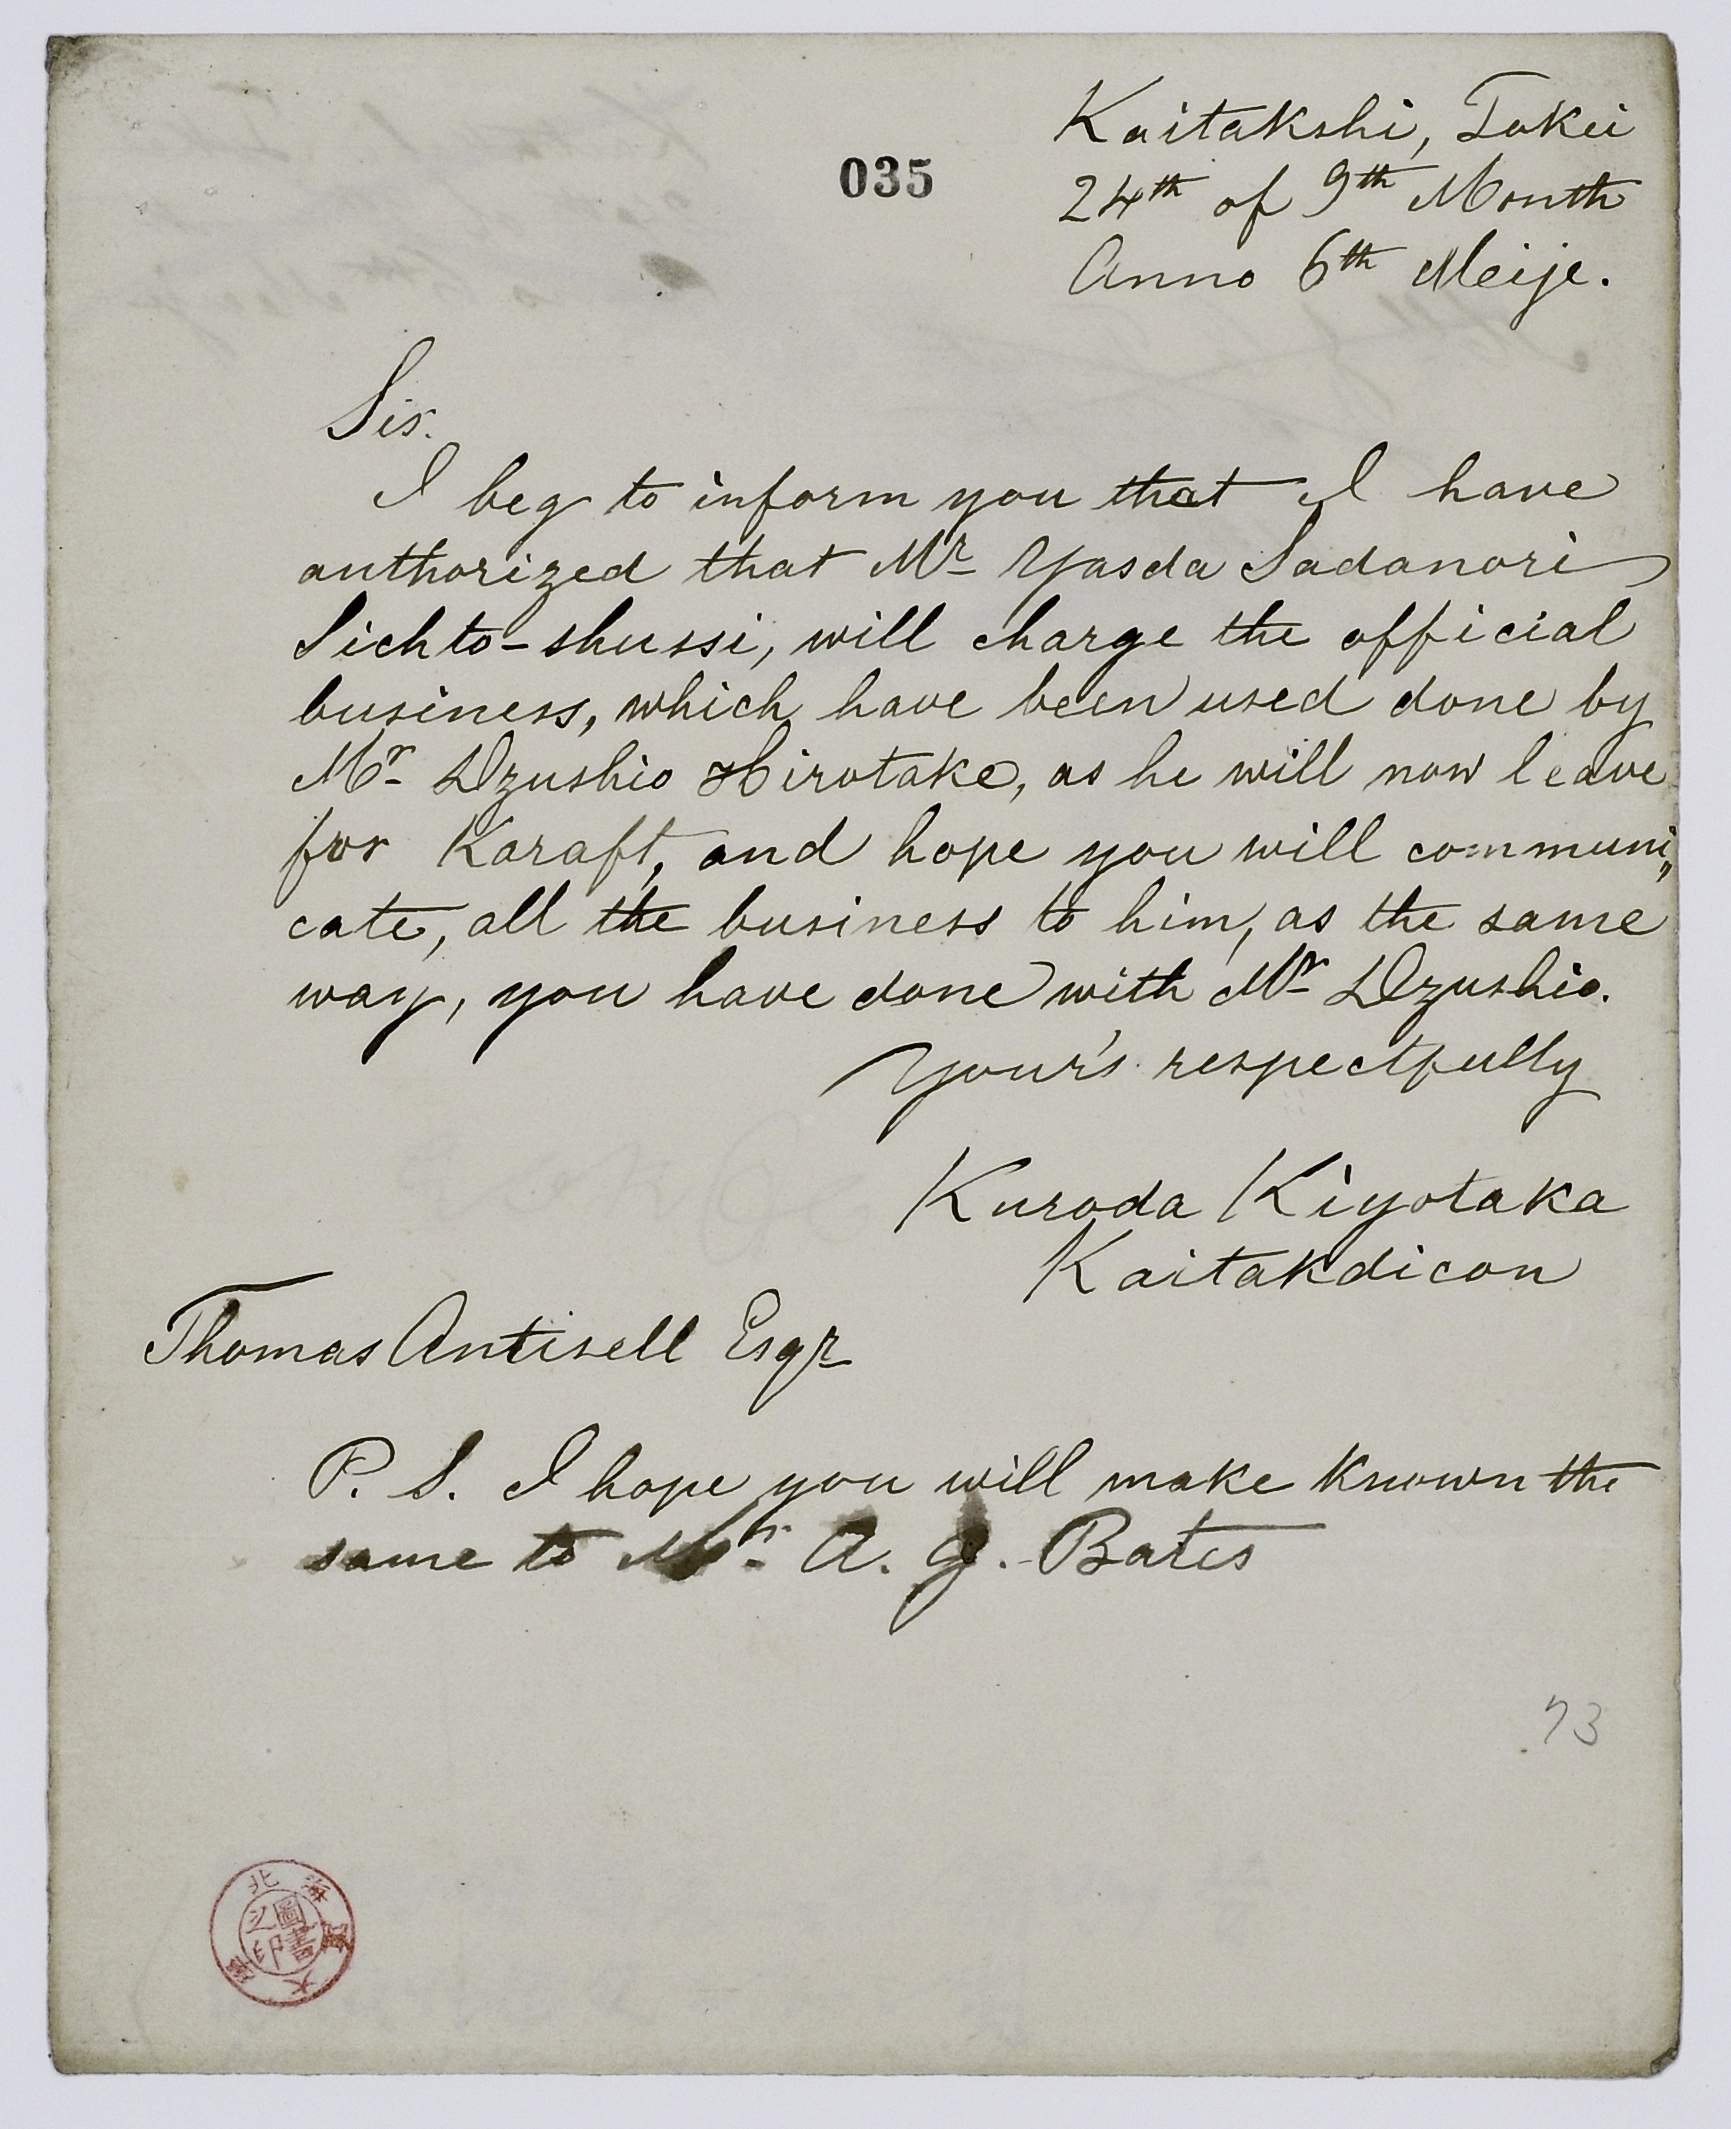 035
Kaitakshi, Tokei
24th of 9th Month
Anno 6th Meije.
Sir.
I beg to inform you that I have
authorized that Mr Yasda Sadanori
Sichto-shussi, will charge the official
business, which have been used done by
Mr Dzushio Hirotake, as he will now leave
for Karaft, and hope you will communi„
cate, all the business to him, as the same
way, you have done with Mr Dzushio.
Your's respectfully
Kuroda Kiyotaka
Kaitakdicon
Thomas Antisell Esqr
P. S. I hope you will make known the
same to Mr. A. G. Bates
73
北海道大學
圖書之印